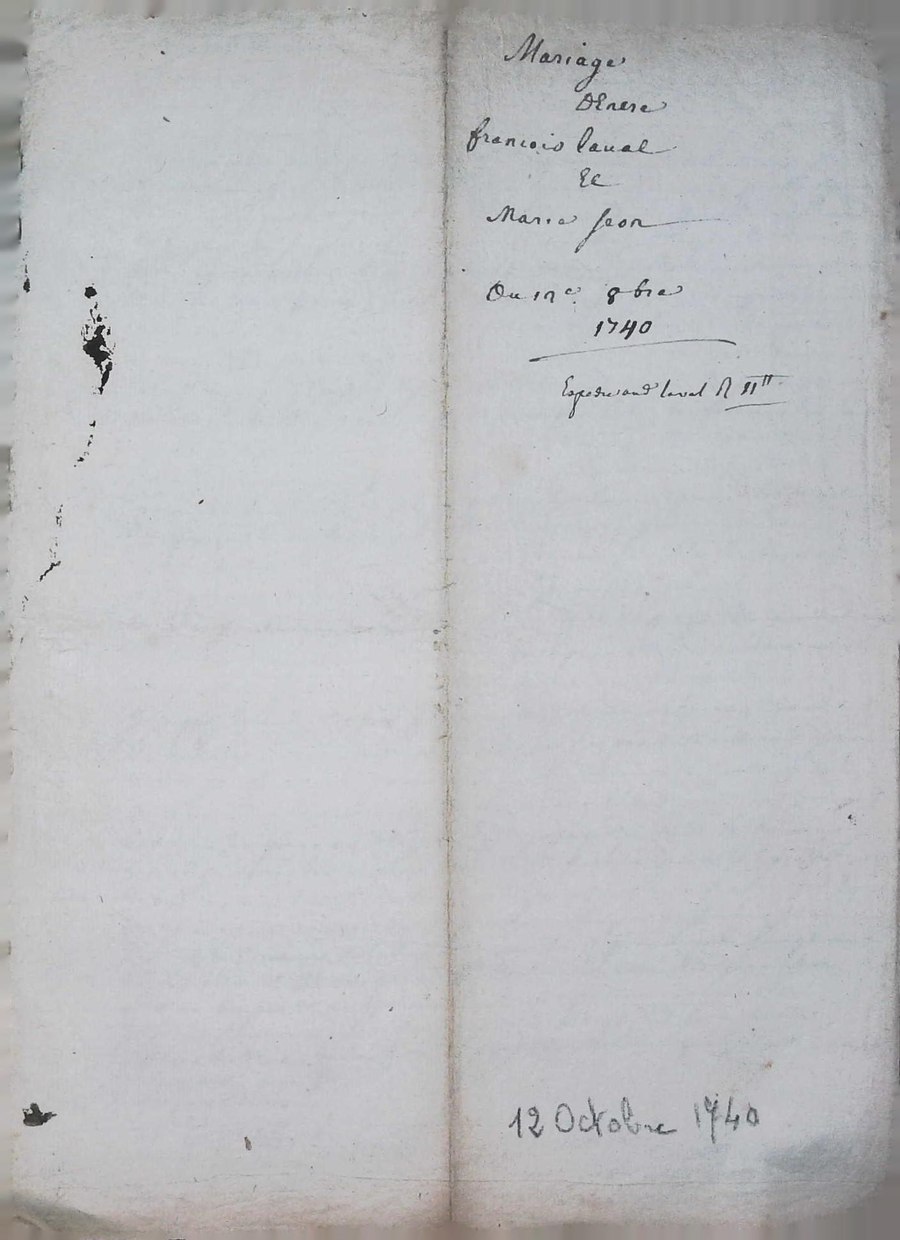 Mariage
D'Entre
francois laval
Et
Marie Jeon
Du 12e 8bre
1740
Expedie aud laval R 11tt
12 Octobre 1740